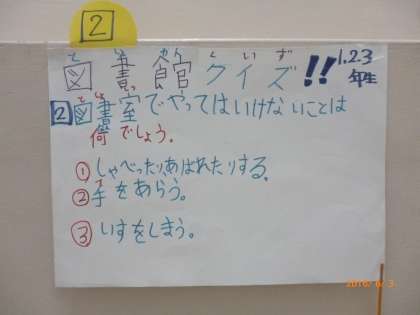 2
図書館クイズ!! 1.2.3年生
2 図書室でやってはいけないことは
何でしょう。
① しゃべったり、あばれたりする。
② 手をあらう。
③ いすをしまう。
2016/6/3